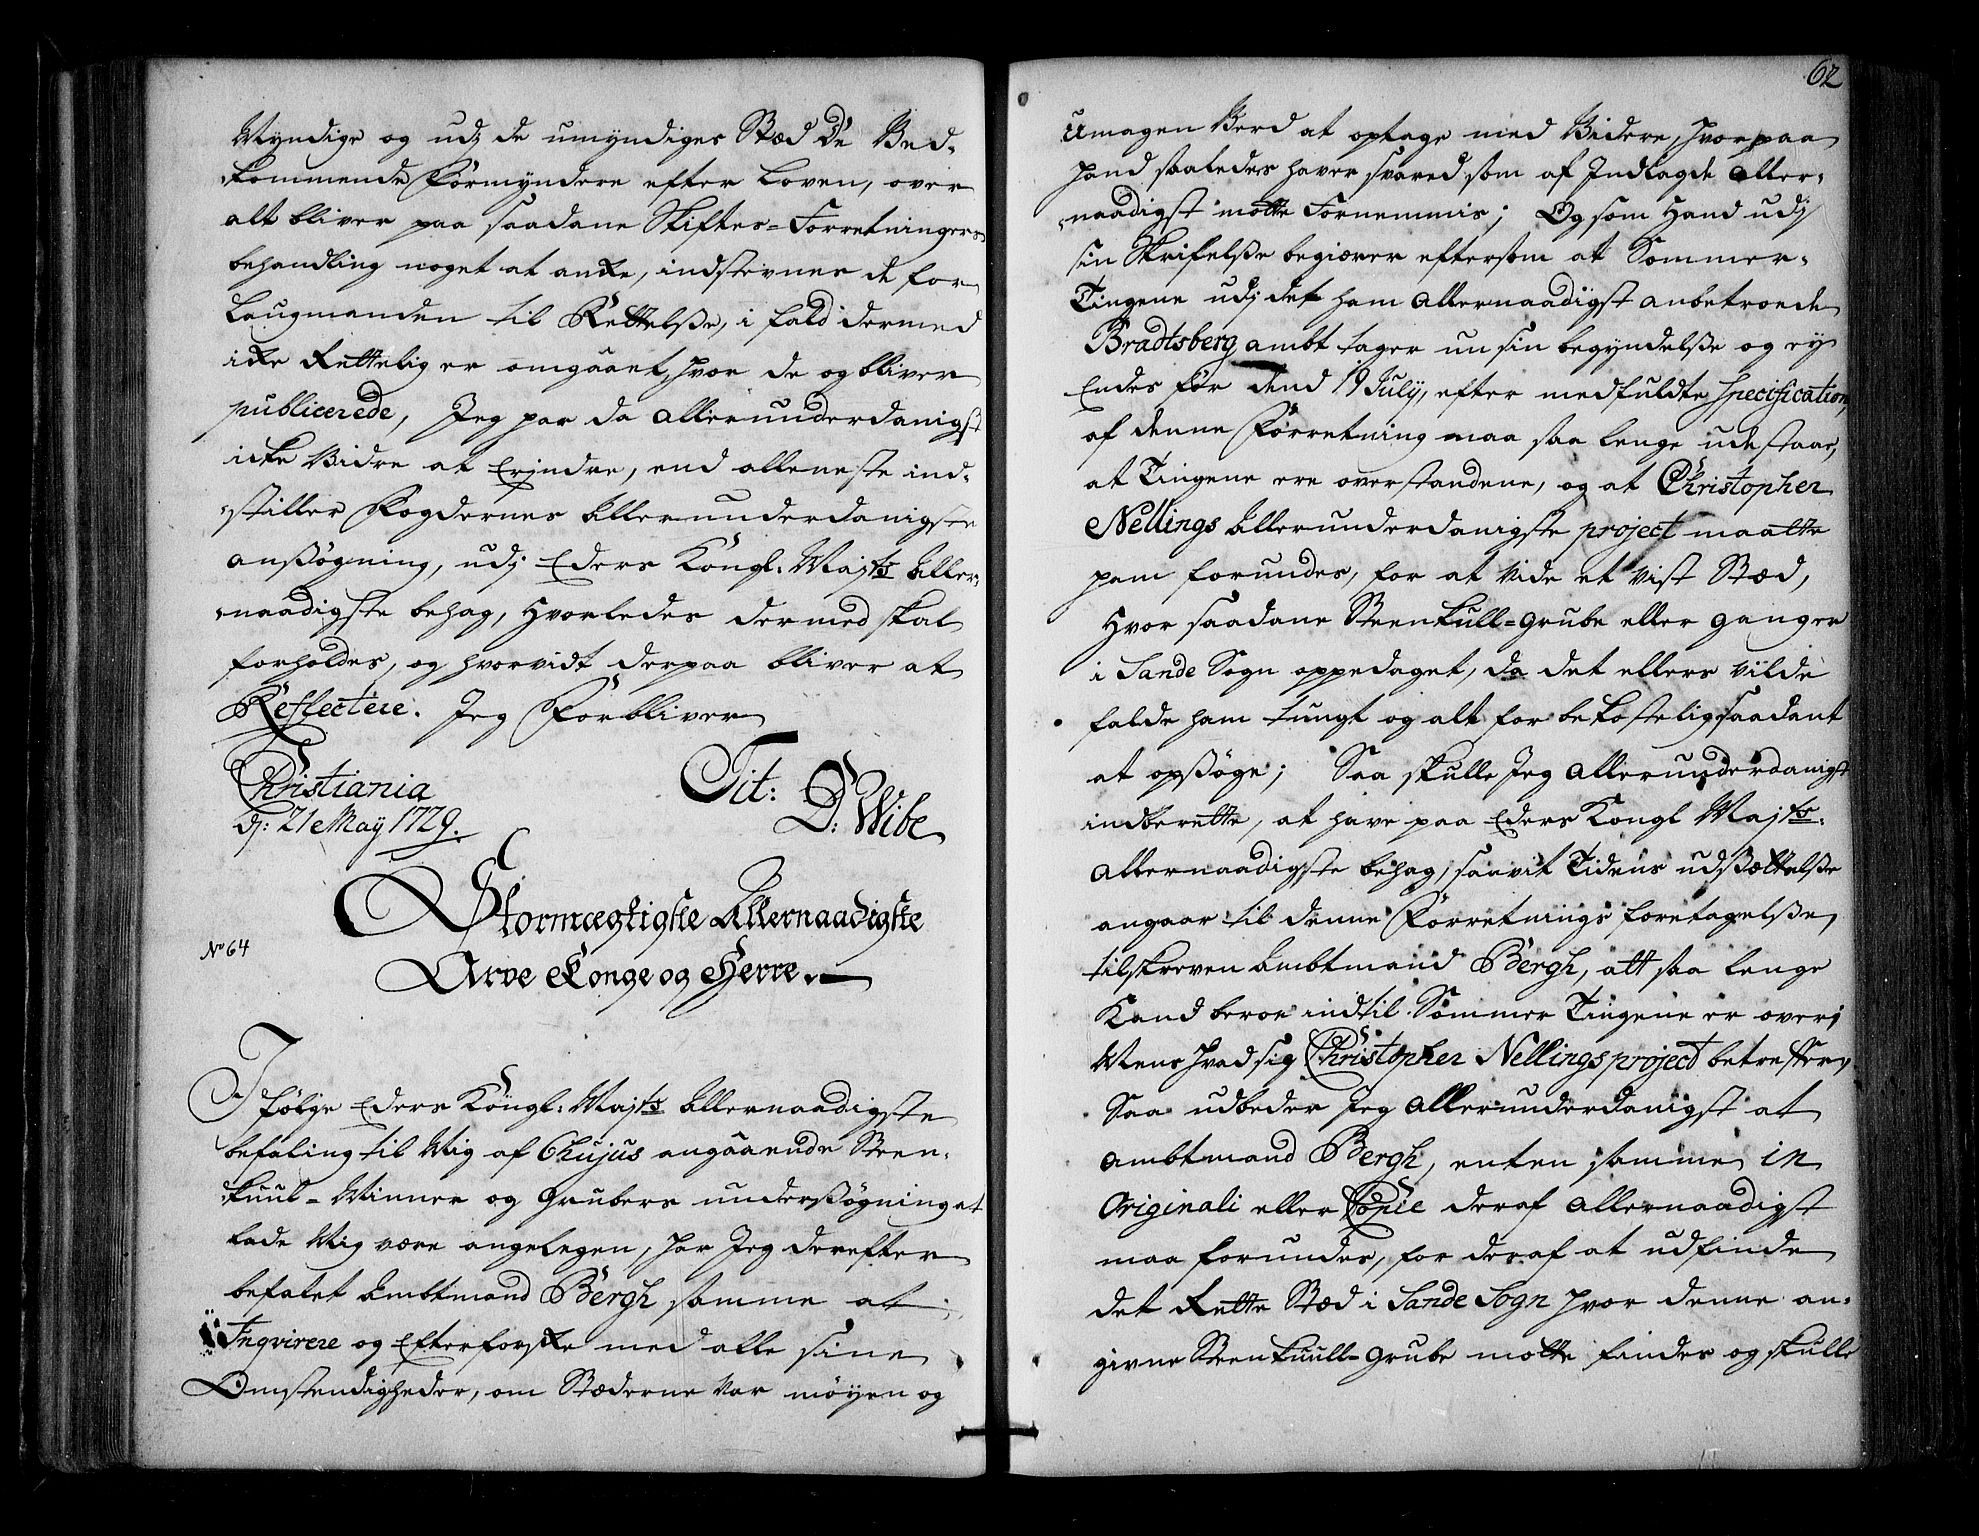 Myndige og udj de umyndiges Stæd De Ved-
kommende Formyndere efter Loven, over
alt bliver paa saadane Skiftes-Forretningers
behandling noget at anke, indstevner de for
Laugmanden til Rettelsse, i fald dermed
icke Rettelig er omgaaet, hvor de og bliver
publicerede, Jeg har da allerunderdanigst
icke Vidre at Erjndre, end alleneste ind-
stiller Fogdernes Allerunderdanigste
anssøgning, udj Eders Kongl: Mayts Aller-
naadigste behag, Hvorledes dermed skal
forholdes, og hvorvidt derpaa bliver at
Reflectere. Jeg Forbliver
Christiania
dj: 21 May 1729.
Tit:
D: Wibe
Stormægtigste Allernaadigste
No 64
Arve Konge og Herre.
I følge Eders Kongl: Mayts Allernaadigste
befaling til Mig af 6 hujus angaaende Steen-
kuul-Minner og Grubers underssøgning at
lade Mig være angelegen, har Jeg derefter
befalet Ambtmand Bergh samme at
Inqvirere og Efterforske med alle sine
Omstendigheder, om Stæderne var møyen og
62
Umagen Værd at optage med Videre, hvorpaa
hand saaledes haver svared som af Indlagde Aller-
naadigst motte Fornemmis; Og som Hand udj
sin Skrifelsse begiærer eftersom at Sommer-
Tingene udj det ham Allernaadigst anbetroede
Bradtsberg ambt tager nu sin begyndelsse og ey
Endes før dend 19 July, efter medfulte Specification,
af denne Forretning maa saa lenge udestaae,
at Tingene ere overstandene, og at Christopher
Nellings Allerunderdanigste project maatte
ham forundes, for at vide et vist Stæd,
Hvor saadane Steenkull-grube eller ganger
i Sande Sogn oppedaget, da det ellers vilde
falde ham tungt og alt for bekosteligsaadant
at opssøge; Saa skulle Jeg Allerunderdanigst
indberette, at have paa Eders Kongl Mayts:
Allernaadigste behag, saavit Tidens udssættelsse
angaar til denne Forretnings foretagelsse,
tilskreven Ambtmand Bergh, att saa lenge
Kand beroe indtil Sommer Tingene er over;
Mens hvad sig Christopher Nellings project betreffer,
Saa udbeder Jeg Allerunderdanigst at
Ambtmand Bergh, enten samme in
Originali eller Copie deraf Allernaadigst
maa forundes, for deraf at udfinde
det Rette Stæd i Sande Sogn hvor denne an-
givne Steenkuull-grube motte findes og skulle